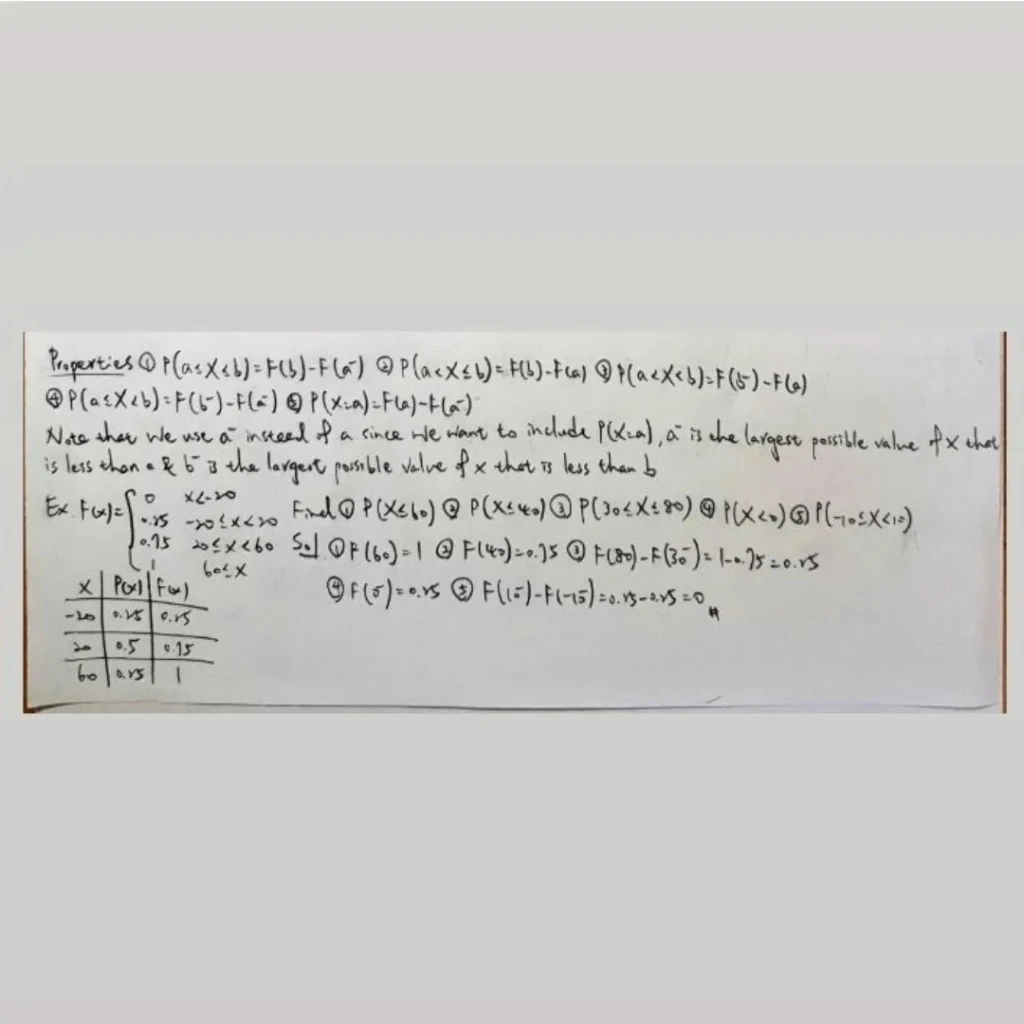 Properties ① P(a≤X≤b)=F(b)-F(a⁻) ② P(a<X≤b)=F(b)-F(a) ③ P(a<X<b)=F(b⁻)-F(a)
④ P(a≤X<b)=F(b⁻)-F(a⁻) ⑤ P(X=a)=F(a)-F(a⁻)
Note that we use a⁻ instead of a since we want to include P(X=a), a⁻ is the largest possible value of x that
is less than a & b⁻ is the largest possible value of x that is less than b
Ex. F(x)={ 0 x<-20
0.25 -20≤x<20 Find ① P(X≤60) ② P(X≤40) ③ P(30≤X≤80) ④ P(X<0) ⑤ P(-10≤X<10)
0.75 20≤x<60 Sol ① F(60)=1 ② F(40)=0.75 ③ F(80)-F(30⁻)=1-0.75=0.25
1 60≤x
④ F(0⁻)=0.25 ⑤ F(10⁻)-F(-10⁻)=0.25-0.25=0
X P(x) F(x)
-20 0.25 0.25
20 0.5 0.75
60 0.25 1